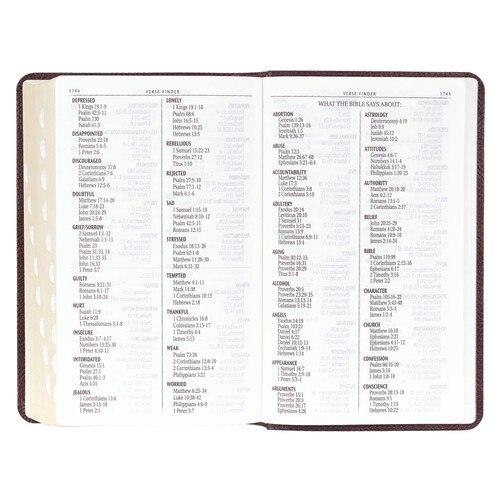 1744
VERSE FINDER
DEPRESSED
1 Kings 19:1-9
Psalm 42:5-11
Psalm 130
Isaiah 61:3
DISAPPOINTED
Proverbs 23:18
Romans 5:4-5
1 Peter 2:6
DISCOURAGED
Deuteronomy 31:8
2 Corinthians 7:6
Galatians 6:9
Hebrews 12:5-6
DOUBTFUL
Matthew 17:14-20
Luke 7:18-23
John 20:24-29
James 1:5-8
GRIEF/SORROW
2 Samuel 1:1-12
Nehemiah 1:1-11
Psalm 23
Psalm 31:10, 14
John 11:33-35
John 16:33
1 Peter 5:7
GUILTY
Psalm 32:1-5
Romans 8:1-17
1 John 3:18-24
HURT
Isaiah 11:9
Luke 6:28
1 Thessalonians 5:1-8
INSECURE
Exodus 3:7-4:17
Numbers 13:25-30
1 Peter 4:10-11
INTIMIDATED
Genesis 15:1
Psalm 27:1
Psalm 46:1-3
Acts 4:31
JEALOUS
1 Corinthians 13:4
James 3:13-18
1 Peter 2:1
LONELY
1 Kings 19:1-18
Psalm 68:6
John 16:5-15
Hebrews 10:25
Hebrews 13:5
REBELLIOUS
1 Samuel 15:22-23
Proverbs 17:11
Titus 3:10
REJECTED
Psalm 27:9-10
Psalm 77:1-12
Mark 6:1-6
SAD
1 Samuel 1:15-18
Nehemiah 8:10-12
Psalm 42:5-11
Romans 15:13
STRESSED
Exodus 18:13-26
Psalm 62:1-8
Matthew 11:28-30
Mark 6:31-32
TEMPTED
Matthew 4:1-11
Mark 14:38
1 Corinthians 10:13
Hebrews 2:18
THANKFUL
1 Chronicles 16:8
Colossians 2:15-17
1 Timothy 4:4
Psalm 115:18
WEAK
Psalm 73:26
2 Corinthians 12:8-10
2 Corinthians 13:3-4
Philippians 4:13
WORRIED
Matthew 6:25-34
Luke 10:38-42
Philippians 4:6-9
1 Peter 5:7
VERSE FINDER
1745
WHAT THE BIBLE SAYS ABOUT:
ABORTION
Genesis 1:26
Psalm 139:13-16
Jeremiah 1:5
Mark 9:36-37
ABUSE
Psalm 12:5
Matthew 26:67-68
Ephesians 5:21-6:4
ACCOUNTABILITY
Matthew 12:36
Luke 17:3
2 Corinthians 5:10
ADULTERY
Exodus 20:14
Leviticus 20:10
2 Samuel 11
Proverbs 5:15-23
Romans 13:9
1 Corinthians 6:9-11
Hebrews 13:4
AGING
Psalm 92:12-15
Proverbs 16:31
Proverbs 20:29
Titus 2:1-8
ALCOHOL
Proverbs 20:1
Proverbs 23:29-35
Romans 13:13
Galatians 5:21
Ephesians 5:18
ANGELS
Exodus 14:19
Psalm 103:21
Daniel 6:22
Daniel 10:12-13
Zechariah 1:9-14
Hebrews 1:14
APPEARANCE
1 Samuel 16:7
1 Timothy 2:9-10
1 Peter 3:3-5
ARGUMENTS
Proverbs 15:1
Proverbs 20:3
Proverbs 26:17
Ephesians 4:26
ASTROLOGY
Deuteronomy 4:19
Job 9:9
Isaiah 45:12
Jeremiah 10:2
ATTITUDES
Genesis 4:6-7
Numbers 14:1-4
Habakkuk 3:17-19
Philippians 1:20-25
AUTHORITY
Matthew 28:18-20
Acts 4:1-22
Hebrews 13:17
BELIEF
John 20:25-29
Romans 4:20-24
Romans 10:9-10
James 2:14-24
BIBLE
Psalm 119:99
2 Corinthians 2:12-16
Ephesians 6:17
2 Timothy 3:16
1 Peter 2:2
CHARACTER
Psalm 105:16-22
Matthew 5:43-48
Romans 5:3-4
James 1:2-4
CHURCH
Matthew 16:18
Ephesians 2:21
Ephesians 3:10
Hebrews 10:25
CONFESSION
Psalm 66:16-20
James 5:16
1 John 1:8-10
CONSCIENCE
Proverbs 28:13-18
Romans 9:1
1 Timothy 4:19
Hebrews 10:22